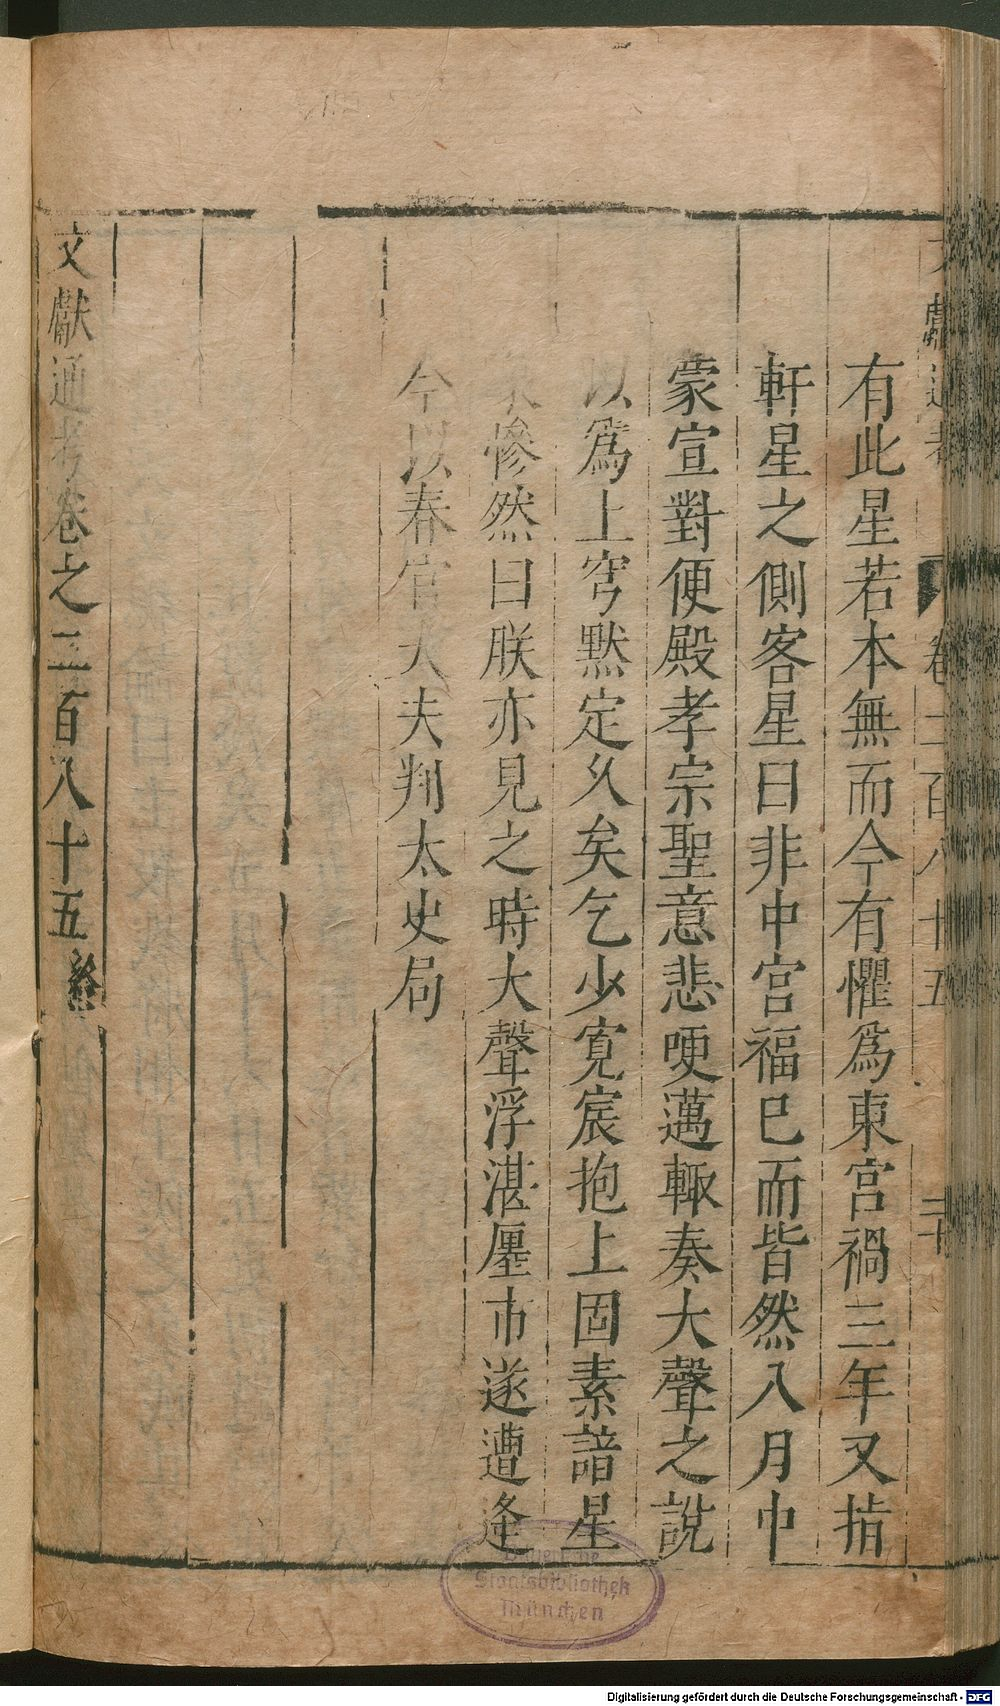 文獻通考 卷二百八十五 二十
有此星若本無而今有懼爲東宮禍三年又指
軒星之側客星曰非中宮福巳而皆然八月中
蒙宣對便殿孝宗聖意悲哽邁輙奏大聲之說
以爲上穹黙定久矣乞少寛宸抱上固素諳星
慘然曰朕亦見之時大聲浮湛廛市遂遭逢
今以春官大夫判太史局
文獻通考卷之二百八十五終
Bayerische
Staatsbibliothek
München
Digitalisierung gefördert durch die Deutsche Forschungsgemeinschaft - DFG